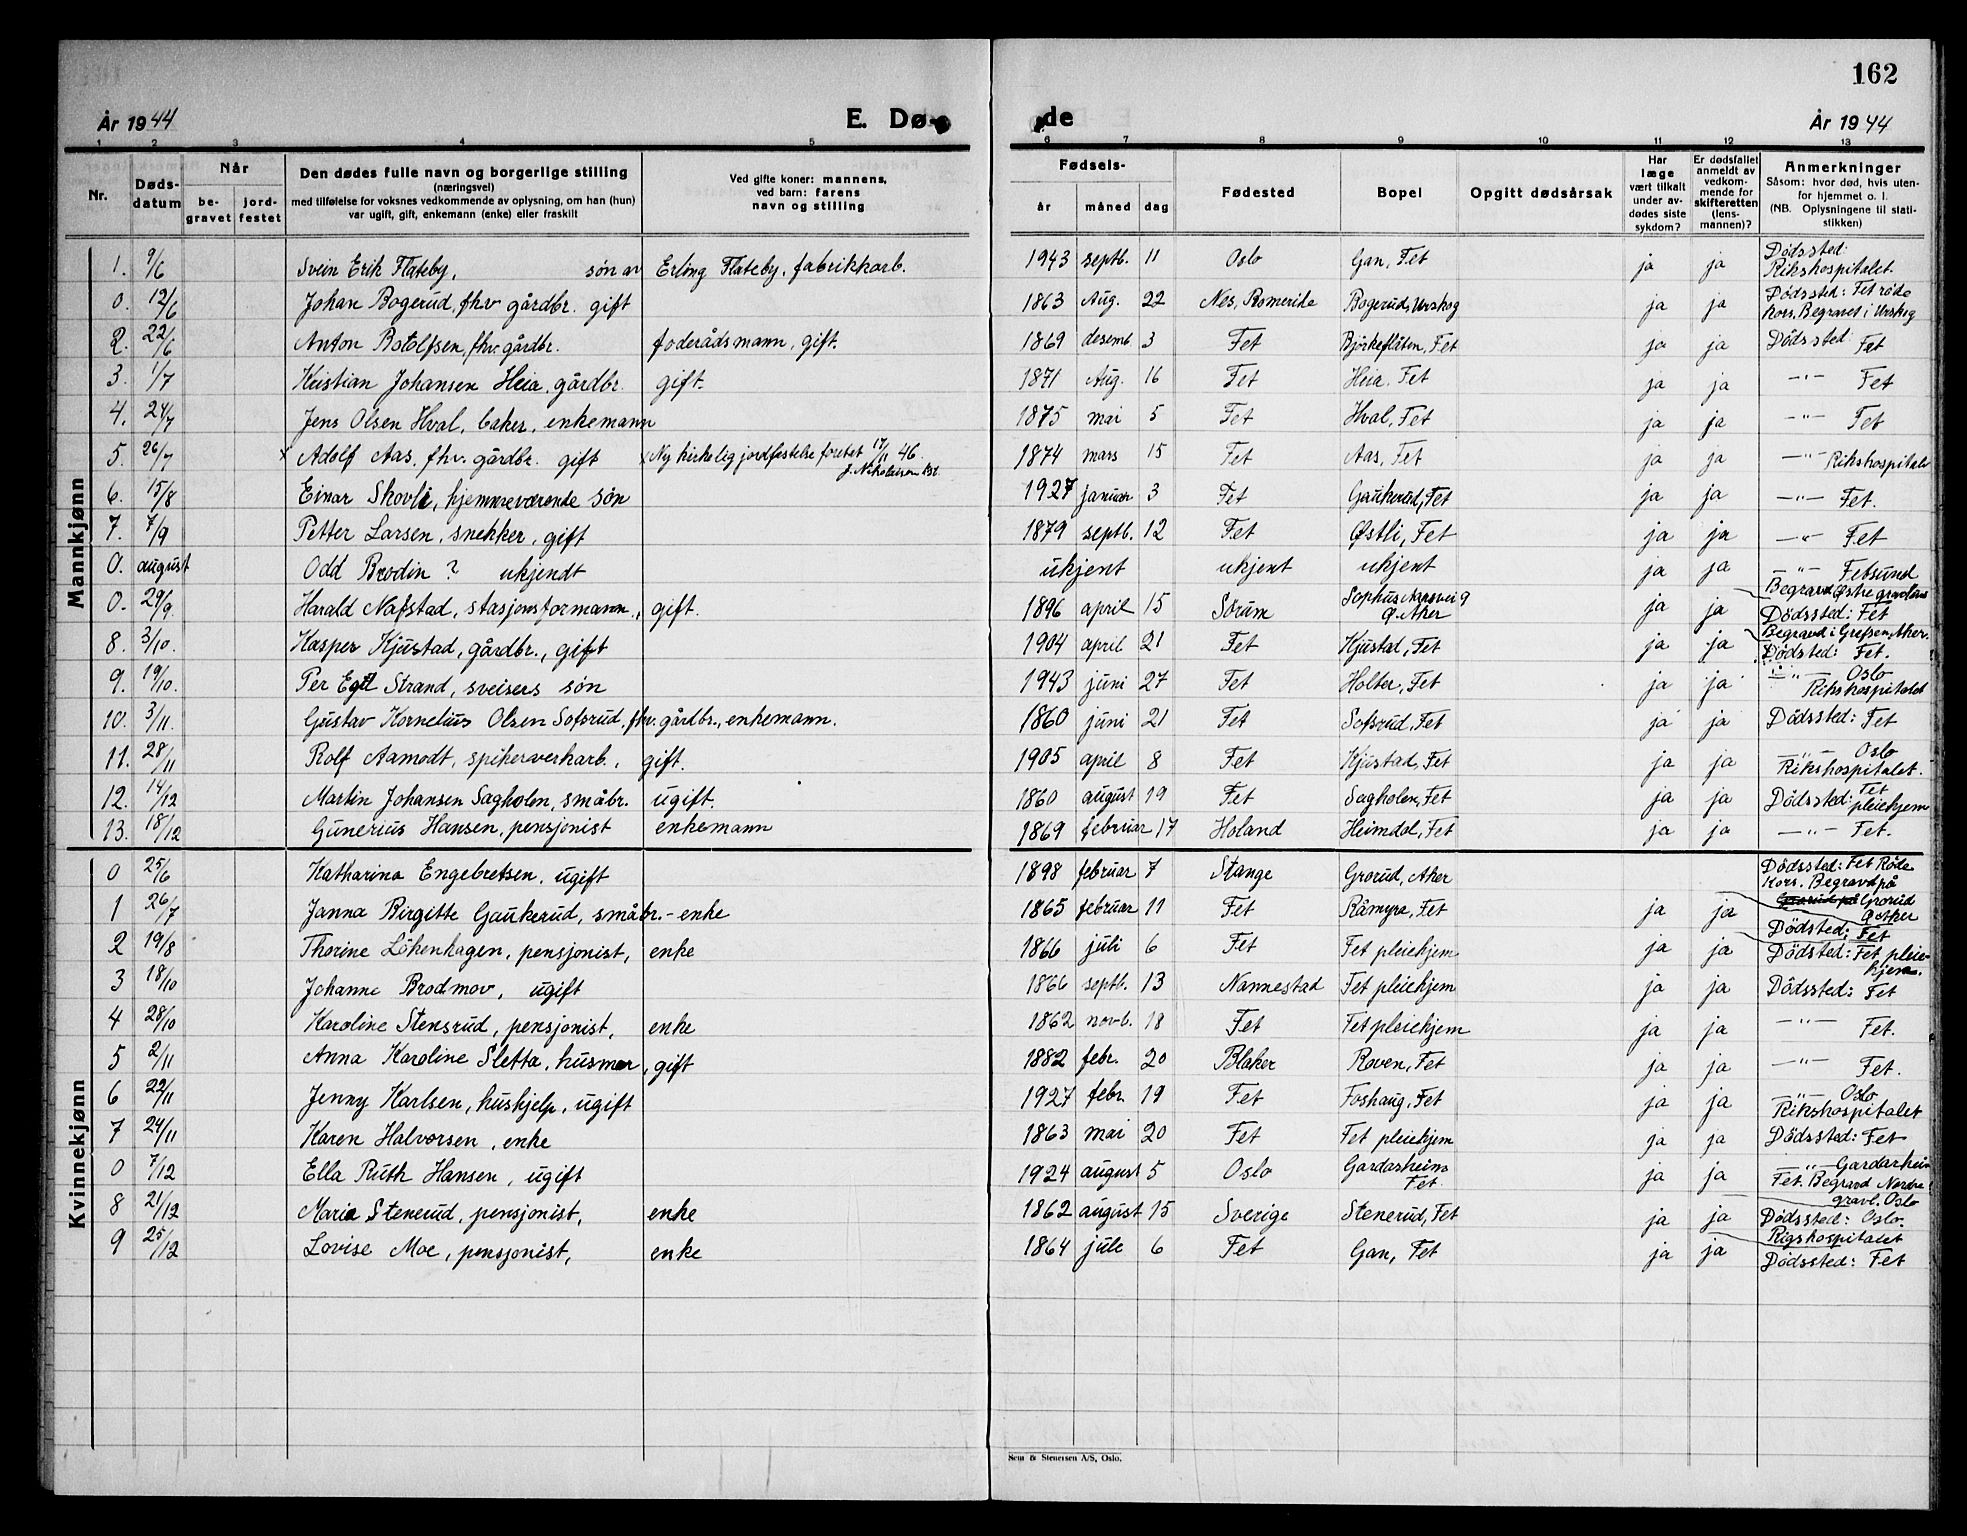 162
År 1944 E. Dø- de År 1944
1 2 3 4 5 6 7 8 9 10 11 12 13
Nr. Døds-datum Når be-gravet jord-festet Den dødes fulle navn og borgerlige stilling (næringsvei) med tilføielse for voksnes vedkommende av oplysning, om han (hun) var ugift, gift, enkemann (enke) eller fraskilt Ved gifte koner: mannens, ved barn: farens navn og stilling Fødsels- år måned dag Fødested Bopel Opgitt dødsårsak Har læge vært tilkalt under av-dødes siste sykdom? Er dødsfallet anmeldt av vedkom-mende for skifteretten (lens-mannen)? Anmerkninger Såsom: hvor død, hvis uten-for hjemmet o. l. (NB. Oplysningene til stati-stikken)
Mannkjønn
1. 9/6 Svein Erik Flateby, søn av Erling Flateby, fabrikkarb. 1943 septb. 11 Oslo Gan, Fet ja ja Dødssted: Rikshospitalet.
0. 12/6 Johan Bogerud, fhv gårdbr. gift 1863 Aug. 22 Nes, Romerike Bogerud, Urskog ja ja Dødssted: Fet røde Kors. Begravet i Urskog
2. 22/6 Anton Botolfsen, fhv. gårdbr. foderådsmann, gift. 1869 desemb. 3 Fet Bjørkeflåten, Fet ja ja Dødssted: Fet
3. 1/7 Kristian Johansen Heia, gårdbr. gift. 1871 Aug. 16 Fet Heia, Fet ja ja —"— Fet
4. 24/7 Jens Olsen Hval, baker, enkemann 1875 mai 5 Fet Hval, Fet ja ja —"— Fet
5. 26/7 x Adolf Aas, fhv. gårdbr. gift x Ny kirkelig jordfestelse foretet 17/11 46. 1874 mars 15 Fet Aas, Fet ja ja —"— Rikshospitalet
6. 15/8 Einar Skovli, hjemmeværende søn 1927 januar 3 Fet Gaukerud, Fet ja ja —"— Fet.
7. 7/9 Petter Larsen, snekker, gift 1879 septb. 12 Fet Østli, Fet ja ja —"— Fet
0. august Odd Brodin ? ukjendt ukjent ukjent ukjent ja ja —"— Fetsund
0. 29/9. Harald Nafstad, stasjonsformann, gift. 1896 april 15 Sørum Sophus Aarsvei 9 Ø. Aker ja ja Begravd Østre gravlund Dødssted: Fet
8. 3/10. Kasper Kjustad, gårdbr., gift 1904 april 21 Fet Kjustad, Fet ja ja Begravd i Grefsen, Aker. Dødsted: Fet.
9. 19/10. Per Egil Strand, sveisers søn 1943 juni 27 Fet Holter, Fet ja ja —"— Oslo Rikshospitalet
10. 3/11. Gustav Kornelius Olsen Sofsrud, fhv. gårdbr., enkemann. 1860 juni 21 Fet Sofsrud, Fet ja ja Dødssted: Fet
11. 28/11 Rolf Aamodt, spikerverkarb., gift. 1905 april 8 Fet Kjustad, Fet ja ja —"— Oslo Rikshospitalet.
12. 14/12 Martin Johansen Sagholen, småbr. ugift. 1860 august 19 Fet Sagholen, Fet ja ja Dødssted: Fet pleiehjem
13. 18/12 Gunerius Hansen, pensjonist enkemann 1869 februar 17 Høland Heimdal, Fet ja ja —"— Fet.
Kvinnekjønn
0 25/6 Katharina Engebretsen, ugift 1898 februar 7 Stange Grorud, Aker Dødssted: Fet Røde Kors. Begravd på Grorud Ø Aker
1 26/7 Janna Birgitte Gaukerud, småbr. - enke 1865 februar 11 Fet Råmyra, Fet ja ja Dødsted: Fet
2 19/8 Thorine Løkenhagen, pensjonist, enke 1866 juli 6 Fet Fet pleiehjem ja ja Dødsted: Fet pleiehjem.
3 18/10 Johanne Brodmov, ugift 1866 septb. 13 Nannestad Fet pleiehjem ja ja Dødssted: Fet
4 28/10 Karoline Stensrud, pensjonist, enke 1862 novb. 18 Fet Fet pleiehjem ja ja —"— Fet.
5 2/11 Anna Karoline Sletta, husmor, gift 1882 febr. 20 Blaker Roven, Fet ja ja —"— Fet.
6 22/11 Jenny Karlsen, hushjelp, ugift 1927 febr. 19 Fet Foshaug, Fet ja ja —"— Oslo Rikshospitalet
7 24/11 Karen Halvorsen, enke 1863 mai 20 Fet Fet pleiehjem ja ja Dødssted: Fet
0 7/12 Ella Ruth Hansen, ugift 1924 august 5 Oslo Gardarheim Fet. ja ja —"— Gardarheim Fet. Begravd Nordre gravl. Oslo
8 21/12 Marie Stenerud, pensjonist, enke 1862 august 15 Sverige Stenerud, Fet ja ja Dødssted: Oslo. Rigshospitalet
9 25/12 Lovise Moe, pensjonist, enke 1864 jule 6 Fet Gan, Fet ja ja Dødssted: Fet
Sem & Stenersen A/S, Oslo.